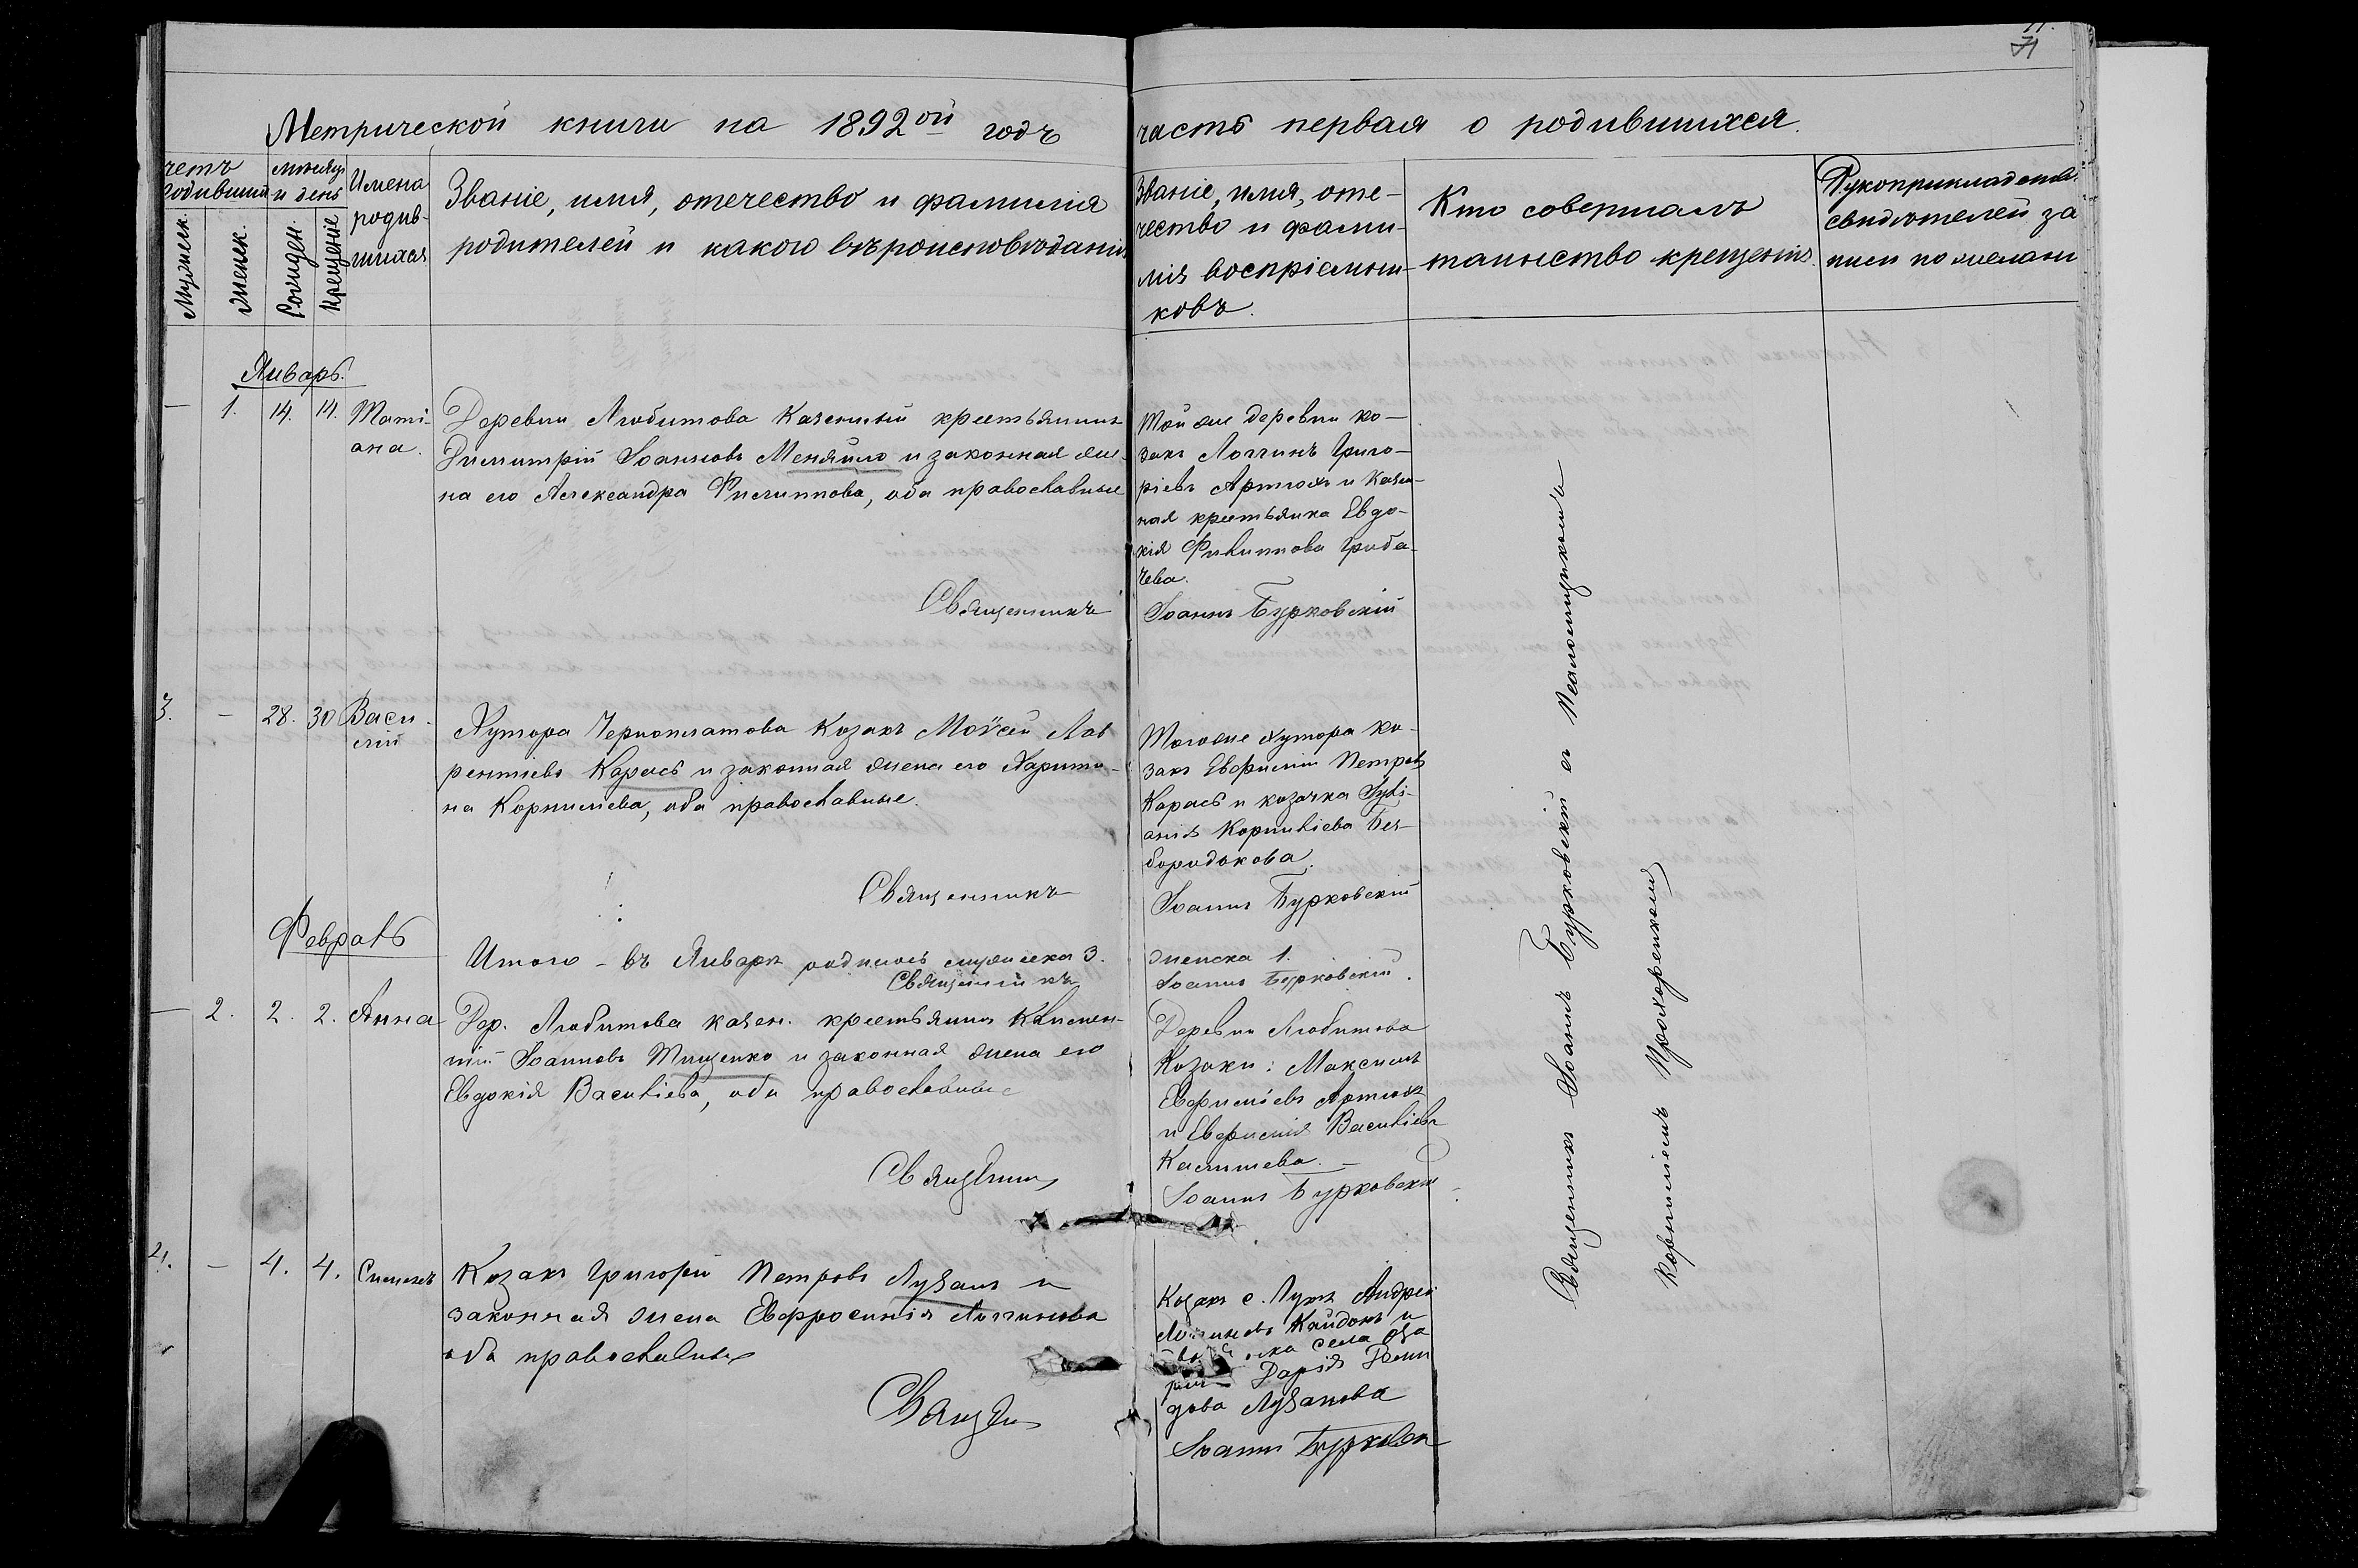 71
Метрической книги на 1892ой годъ
часть первая о родившихся.
четъ родивших
Мужеск.
женск.
мѣсяцъ и день
Рожден.
Крещение
Имена
родив-
шихся
Званіе, имя, отечество и фамилія
родителей и какого вѣроисповѣданія
Званіе, имя, оте-
чество и фами-
лія воспріемни-
ковъ.
Кто совершалъ
таинство крещенія.
Рукоприкладств.
свидѣтелей за
писи по желані
Январь.
— 1. 14. 14. Тати-
ана.
Деревни Любитова казенный крестьянинъ
Димитрій Іоанновъ Меняйло и законная же-
на его Александра Филиппова, оба православные
Священникъ
Той же деревни ко-
закъ Логгинъ Григо-
ріевъ Артюхъ и казен-
ная крестьянка Евдо-
кія Филиппова Гриба-
чева.
Іоаннъ Бурковскій
3. — 28. 30 Васи-
лій
Хутора Черноплатова Козакъ Моѵсей Лав
рентіевъ Карась и законная жена его Харити-
на Корнилиева, оба православные.
Священникъ
Тогоже хутора ко-
закъ Евфимій Петровъ
Карась и козачка Іулі-
анія Корниліева Без-
бородькова.
Іоаннъ Бурковскій
Февраль
Итого – въ Январѣ родилось мужеска 3.
женска 1.
Священникъ
Іоаннъ Бурковскій.
— 2. 2. 2. Анна
Дер. Любитова казен. крестьянинъ Климен-
тій Іоанновъ Тищенко и законная жена его
Евдокія Василіева, оба православные
Священникъ
Деревни Любитова
Козаки: Максимъ
Евфиміевъ Артюхъ
и Евфимія Василіева
Калишева. —
Іоаннъ Бурковскій
4. — 4. 4. Симеонъ
Козакъ Григорій Петровъ Лузанъ и
законная жена Евфросинія Логгинова
оба православные
Священ
Козакъ с. Андрей
Логгиновъ Кайдонъ и
села
Дарія Деми
дова Лузанова
Іоаннъ Бурковск
Священникъ Іоаннъ Бурковскій съ Псаломщикомъ
Корниліемъ Прохоренкомъ